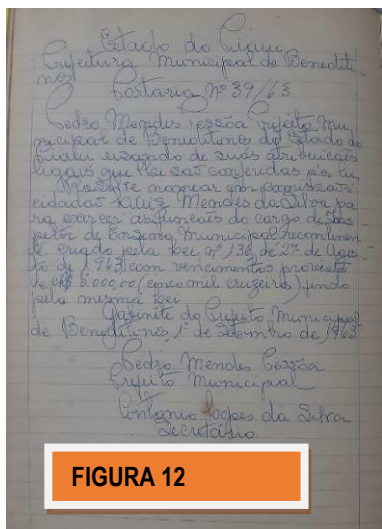 Estado do Piauí
Prefeitura Municipal de Benediti-
nos
Portaria Nº 39/63
Pedro Mendes Pessôa prefeito Mu-
nicipal de Beneditinos do Estado do
Piauí usando de suas atribuicais
legais que lhe são conferidas por lei,
Resolve nomear em comissão
cidadão Luiz Mendes da Silva pa-
ra exercer as funcais do cargo de Ins-
petor de Ensino Municipal
te criado pela Lei nº 136, de 27 de Agos-
to de 1.963, com vencimentos
de Cr$ 5.000,00 (cinco mil cruzeiros)
pela mesma Lei
Gabinete do Prefeito Municipal
de Beneditinos, 1º de Setembro de 1963
Pedro Mendes Pessôa
Prefeito Municipal
Antonio Lopes da Silva
Secretário
FIGURA 12